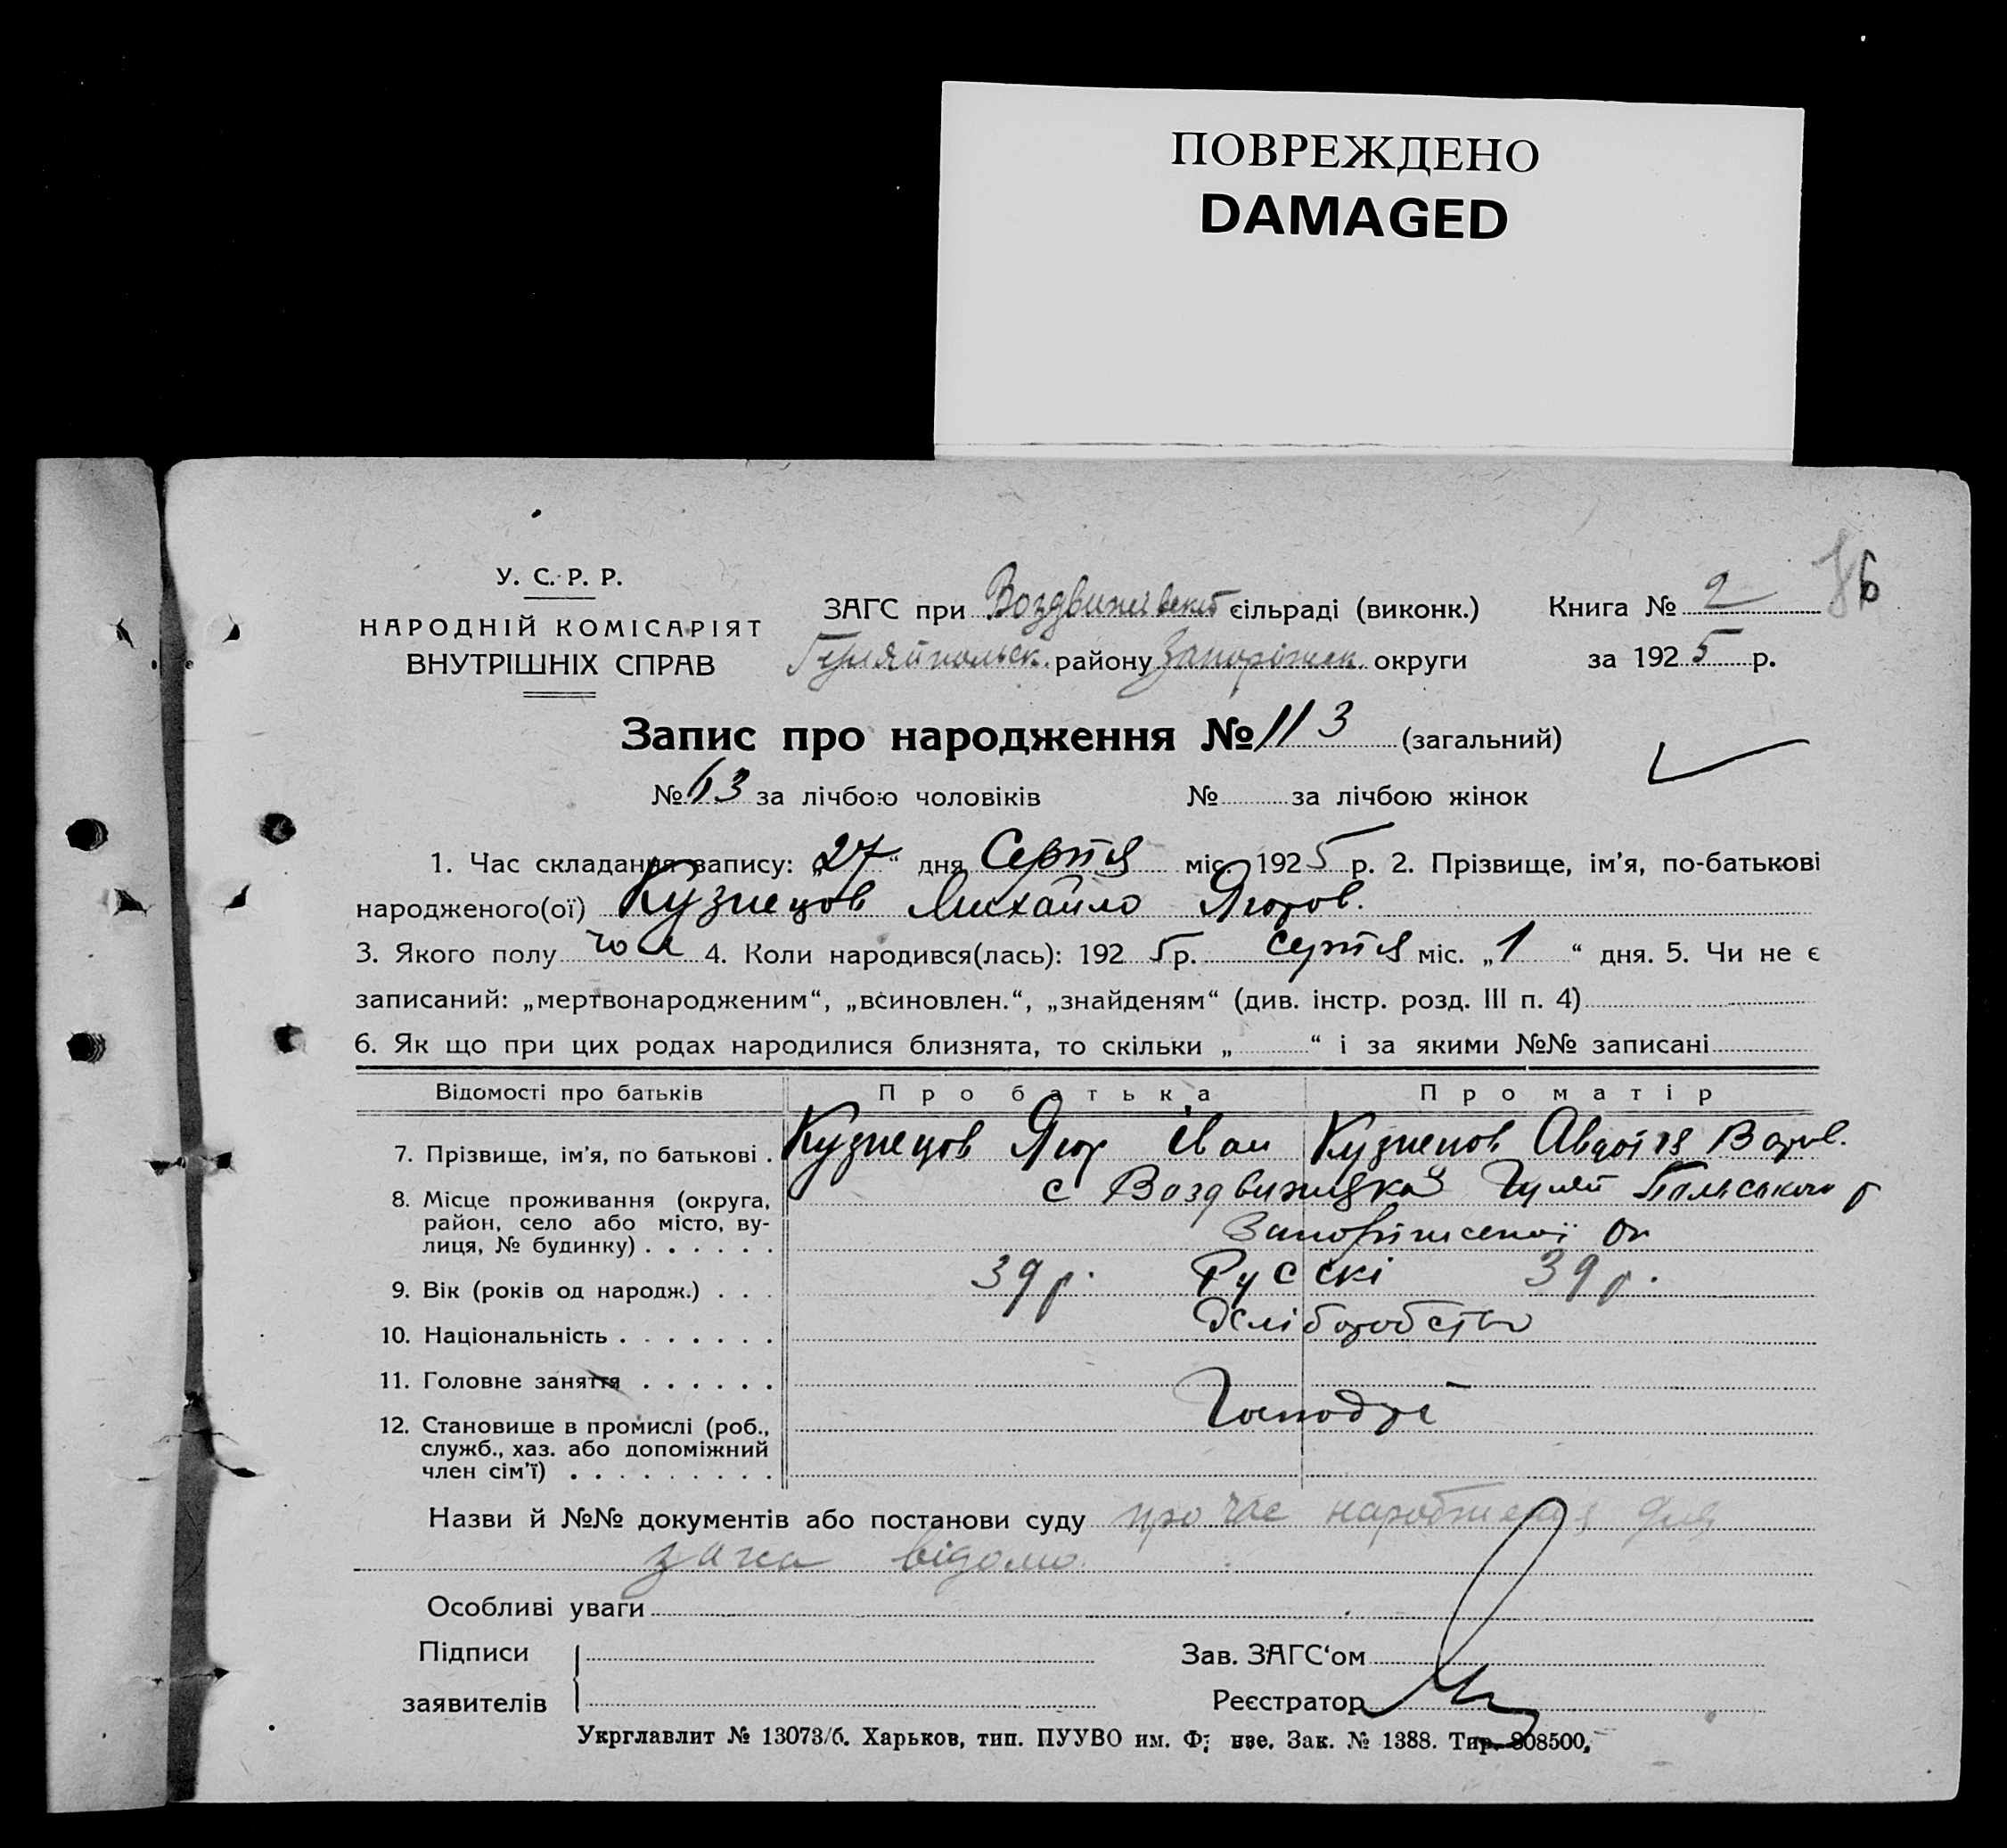 ПОВРЕЖДЕНО
DAMAGED
У. С. Р. Р.
НАРОДНІЙ КОМІСАРІЯТ
ВНУТРІШНІХ СПРАВ
ЗАГС при сільраді (виконк.)
району Запоріжск. округи
Книга № 2
за 1925 р.
Запис про народження № 113 (загальний)
№ 63 за лічбою чоловіків № за лічбою жінок
1. Час складання запису: „27“ дня Серпня міс. 1925 р. 2. Прізвище, ім’я, по-батькові
народженого(ої) Кузнецов Михайло Ягоров.
3. Якого полу чол 4. Коли народився(лась): 1925 р. серпня міс. „1“ дня. 5. Чи не є
записаний: „мертвонародженим“, „всиновлен.“, „знайденям“ (див. інстр. розд. III п. 4)
6. Як що при цих родах народилися близнята, то скільки „ “ і за якими №№ записані
Відомості про батьків Про батька Про матір
7. Прізвище, ім’я, по батькові . Кузнецов Ягор Іван Кузнецов Авдотя
8. Місце проживання (округа, с Гуляй Польського р
район, село або місто, ву-
лиця, № будинку) . . . . . . Ок
9. Вік (років од народж.) . . . 39 р. Русскі 39 р.
10. Національність . . . . . . . Хліборобство
11. Головне заняття . . . . . .
12. Становище в промислі (роб.,
служб., хаз. або допоміжний
член сім’ї) . . . . . . . . .
Назви й №№ документів або постанови суду про час народження для
загса відомо.
Особливі уваги
Підписи
заявителів
Зав. ЗАГС‘ом
Реєстратор
Укрглавлит № 13073/б. Харьков, тип. ПУУВО им. Ф нзе. Зак. № 1388. Тир. 808500.